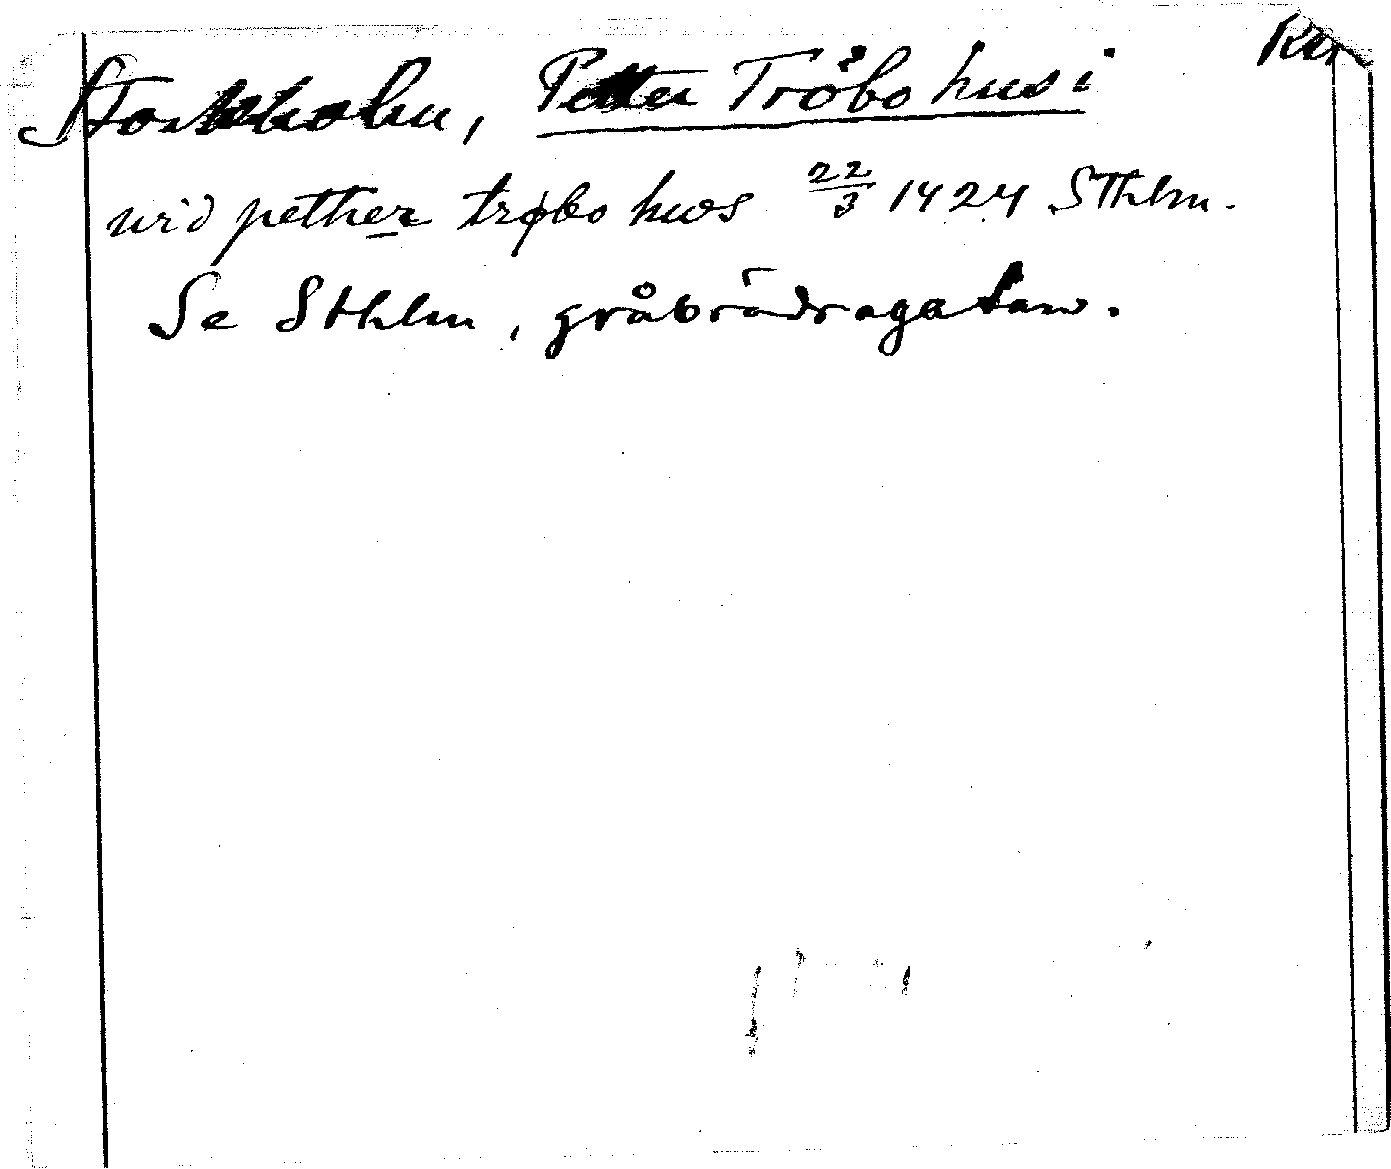 Stockholm, Petter Tröbo hus i
wid pether trøbo hws 22/3 1424 Sthlm.
Se Sthlm, gråbrödragatan.